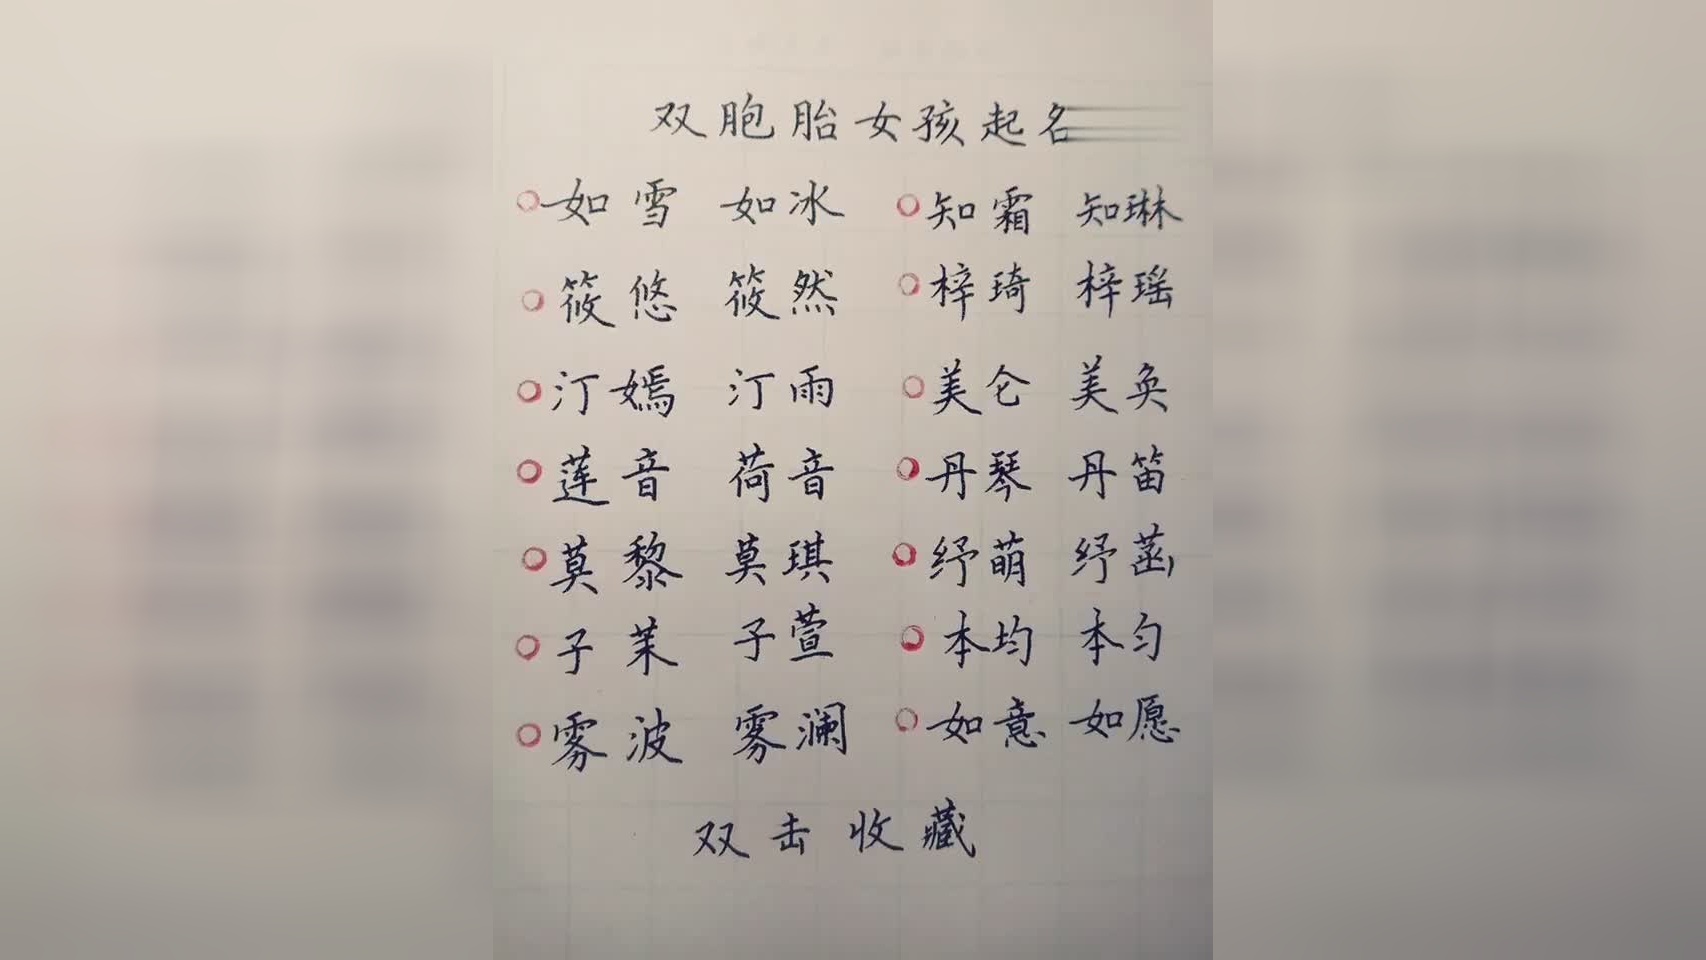 双胞胎女孩起名
如雪 如冰 知霜 知琳
筱悠 筱然 梓琦 梓瑶
汀嫣 汀雨 美仑 美奂
莲音 荷音 丹琴 丹笛
莫黎 莫琪 纾萌 纾菡
子茉 子萱 本均 本匀
雾波 雾澜 如意 如愿
双击收藏